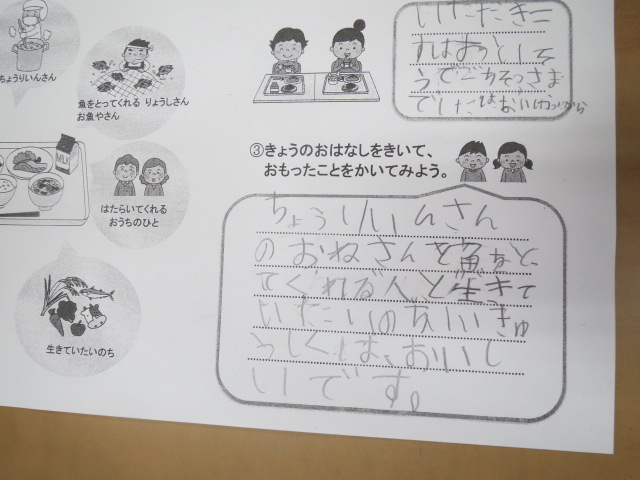 ちょうりいんさん
魚をとってくれる りょうしさん
お魚やさん
はたらいてくれる
おうちのひと
生きていたいのち
MILK
いただきに
すはおわとしち
うでごちそうさま
でした
③きょうのおはなしをきいて、
おもったことをかいてみよう。
ちょうりいんさん
のおねさんを魚をと
てぐれる人と生きて
いたいのちいいきゅ
うしくは、おいし
いです。